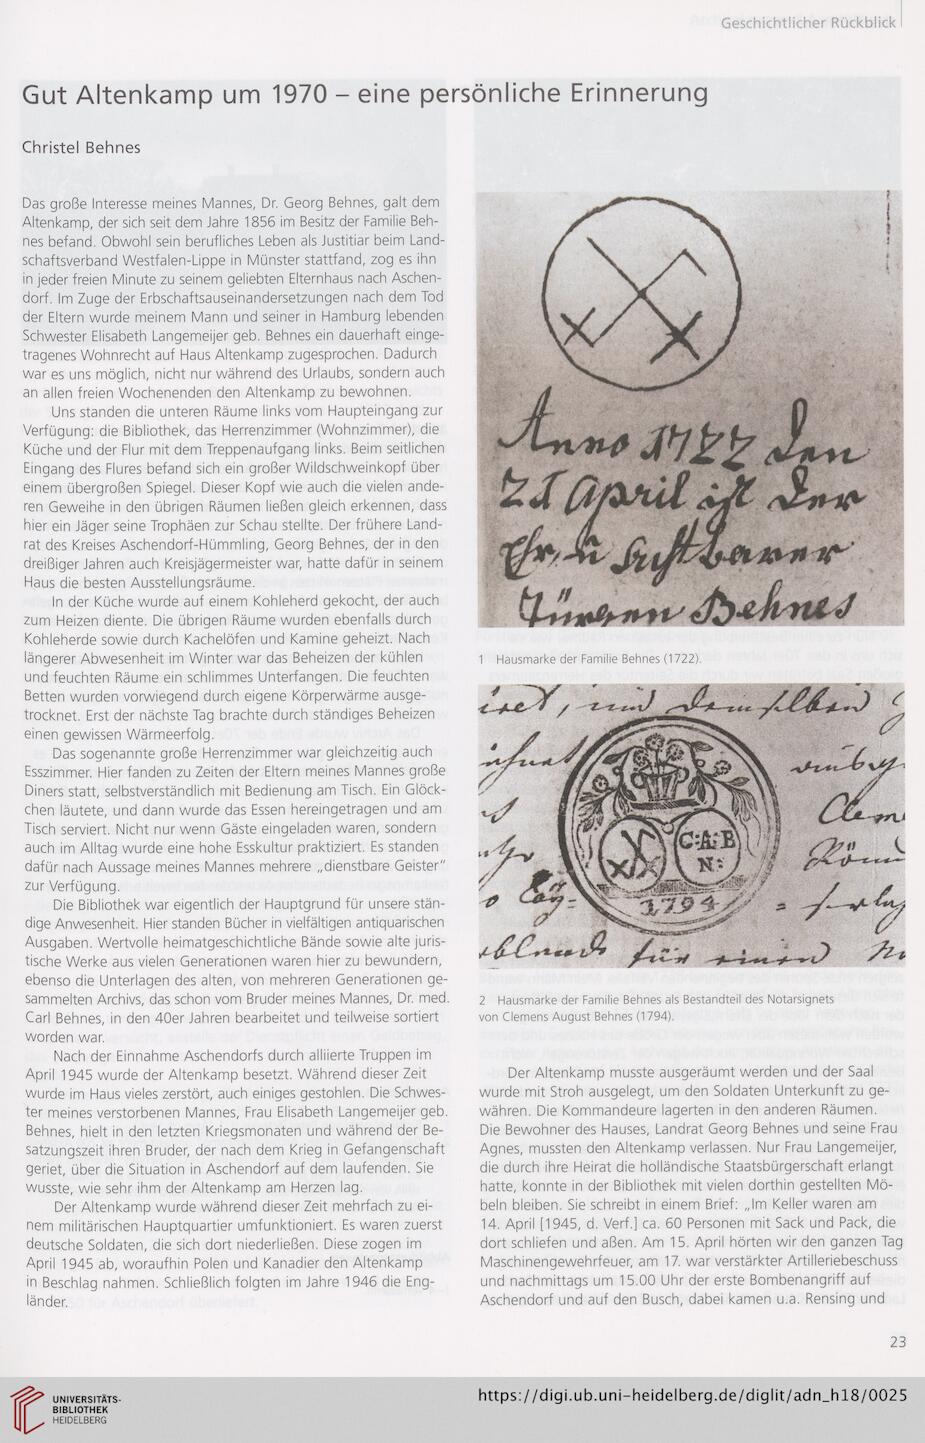 Geschichtlicher Rückblick
Gut Altenkamp um 1970 – eine persönliche Erinnerung
Christel Behnes
Das große Interesse meines Mannes, Dr. Georg Behnes, galt dem
Altenkamp, der sich seit dem Jahre 1856 im Besitz der Familie Beh-
nes befand. Obwohl sein berufliches Leben als Justitiar beim Land-
schaftsverband Westfalen-Lippe in Münster stattfand, zog es ihn
in jeder freien Minute zu seinem geliebten Elternhaus nach Aschen-
dorf. Im Zuge der Erbschaftsauseinandersetzungen nach dem Tod
der Eltern wurde meinem Mann und seiner in Hamburg lebenden
Schwester Elisabeth Langemeijer geb. Behnes ein dauerhaft einge-
tragenes Wohnrecht auf Haus Altenkamp zugesprochen. Dadurch
war es uns möglich, nicht nur während des Urlaubs, sondern auch
an allen freien Wochenenden den Altenkamp zu bewohnen.
Uns standen die unteren Räume links vom Haupteingang zur
Verfügung: die Bibliothek, das Herrenzimmer (Wohnzimmer), die
Küche und der Flur mit dem Treppenaufgang links. Beim seitlichen
Eingang des Flures befand sich ein großer Wildschweinkopf über
einem übergroßen Spiegel. Dieser Kopf wie auch die vielen ande-
ren Geweihe in den übrigen Räumen ließen gleich erkennen, dass
hier ein Jäger seine Trophäen zur Schau stellte. Der frühere Land-
rat des Kreises Aschendorf-Hümmling, Georg Behnes, der in den
dreißiger Jahren auch Kreisjägermeister war, hatte dafür in seinem
Haus die besten Ausstellungsräume.
In der Küche wurde auf einem Kohleherd gekocht, der auch
zum Heizen diente. Die übrigen Räume wurden ebenfalls durch
Kohleherde sowie durch Kachelöfen und Kamine geheizt. Nach
längerer Abwesenheit im Winter war das Beheizen der kühlen
und feuchten Räume ein schlimmes Unterfangen. Die feuchten
Betten wurden vorwiegend durch eigene Körperwärme ausge-
trocknet. Erst der nächste Tag brachte durch ständiges Beheizen
einen gewissen Wärmeerfolg.
Das sogenannte große Herrenzimmer war gleichzeitig auch
Esszimmer. Hier fanden zu Zeiten der Eltern meines Mannes große
Diners statt, selbstverständlich mit Bedienung am Tisch. Ein Glöck-
chen läutete, und dann wurde das Essen hereingetragen und am
Tisch serviert. Nicht nur wenn Gäste eingeladen waren, sondern
auch im Alltag wurde eine hohe Esskultur praktiziert. Es standen
dafür nach Aussage meines Mannes mehrere „dienstbare Geister“
zur Verfügung.
Die Bibliothek war eigentlich der Hauptgrund für unsere stän-
dige Anwesenheit. Hier standen Bücher in vielfältigen antiquarischen
Ausgaben. Wertvolle heimatgeschichtliche Bände sowie alte juris-
tische Werke aus vielen Generationen waren hier zu bewundern,
ebenso die Unterlagen des alten, von mehreren Generationen ge-
sammelten Archivs, das schon vom Bruder meines Mannes, Dr. med.
Carl Behnes, in den 40er Jahren bearbeitet und teilweise sortiert
worden war.
Nach der Einnahme Aschendorfs durch alliierte Truppen im
April 1945 wurde der Altenkamp besetzt. Während dieser Zeit
wurde im Haus vieles zerstört, auch einiges gestohlen. Die Schwes-
ter meines verstorbenen Mannes, Frau Elisabeth Langemeijer geb.
Behnes, hielt in den letzten Kriegsmonaten und während der Be-
satzungszeit ihren Bruder, der nach dem Krieg in Gefangenschaft
geriet, über die Situation in Aschendorf auf dem laufenden. Sie
wusste, wie sehr ihm der Altenkamp am Herzen lag.
Der Altenkamp wurde während dieser Zeit mehrfach zu ei-
nem militärischen Hauptquartier umfunktioniert. Es waren zuerst
deutsche Soldaten, die sich dort niederließen. Diese zogen im
April 1945 ab, woraufhin Polen und Kanadier den Altenkamp
in Beschlag nahmen. Schließlich folgten im Jahre 1946 die Eng-
länder.
Anno 1722 den
21 April ist der
Ehr, u Achtbarer
Jürgen Behnes
1 Hausmarke der Familie Behnes (1722).
C:A:B
N:
1794
2 Hausmarke der Familie Behnes als Bestandteil des Notarsignets
von Clemens August Behnes (1794).
Der Altenkamp musste ausgeräumt werden und der Saal
wurde mit Stroh ausgelegt, um den Soldaten Unterkunft zu ge-
währen. Die Kommandeure lagerten in den anderen Räumen.
Die Bewohner des Hauses, Landrat Georg Behnes und seine Frau
Agnes, mussten den Altenkamp verlassen. Nur Frau Langemeijer,
die durch ihre Heirat die holländische Staatsbürgerschaft erlangt
hatte, konnte in der Bibliothek mit vielen dorthin gestellten Mö-
beln bleiben. Sie schreibt in einem Brief: „Im Keller waren am
14. April [1945, d. Verf.] ca. 60 Personen mit Sack und Pack, die
dort schliefen und aßen. Am 15. April hörten wir den ganzen Tag
Maschinengewehrfeuer, am 17. war verstärkter Artilleriebeschuss
und nachmittags um 15.00 Uhr der erste Bombenangriff auf
Aschendorf und auf den Busch, dabei kamen u.a. Rensing und
23
UNIVERSITÄTS-
BIBLIOTHEK
HEIDELBERG
https://digi.ub.uni-heidelberg.de/diglit/adn_h18/0025